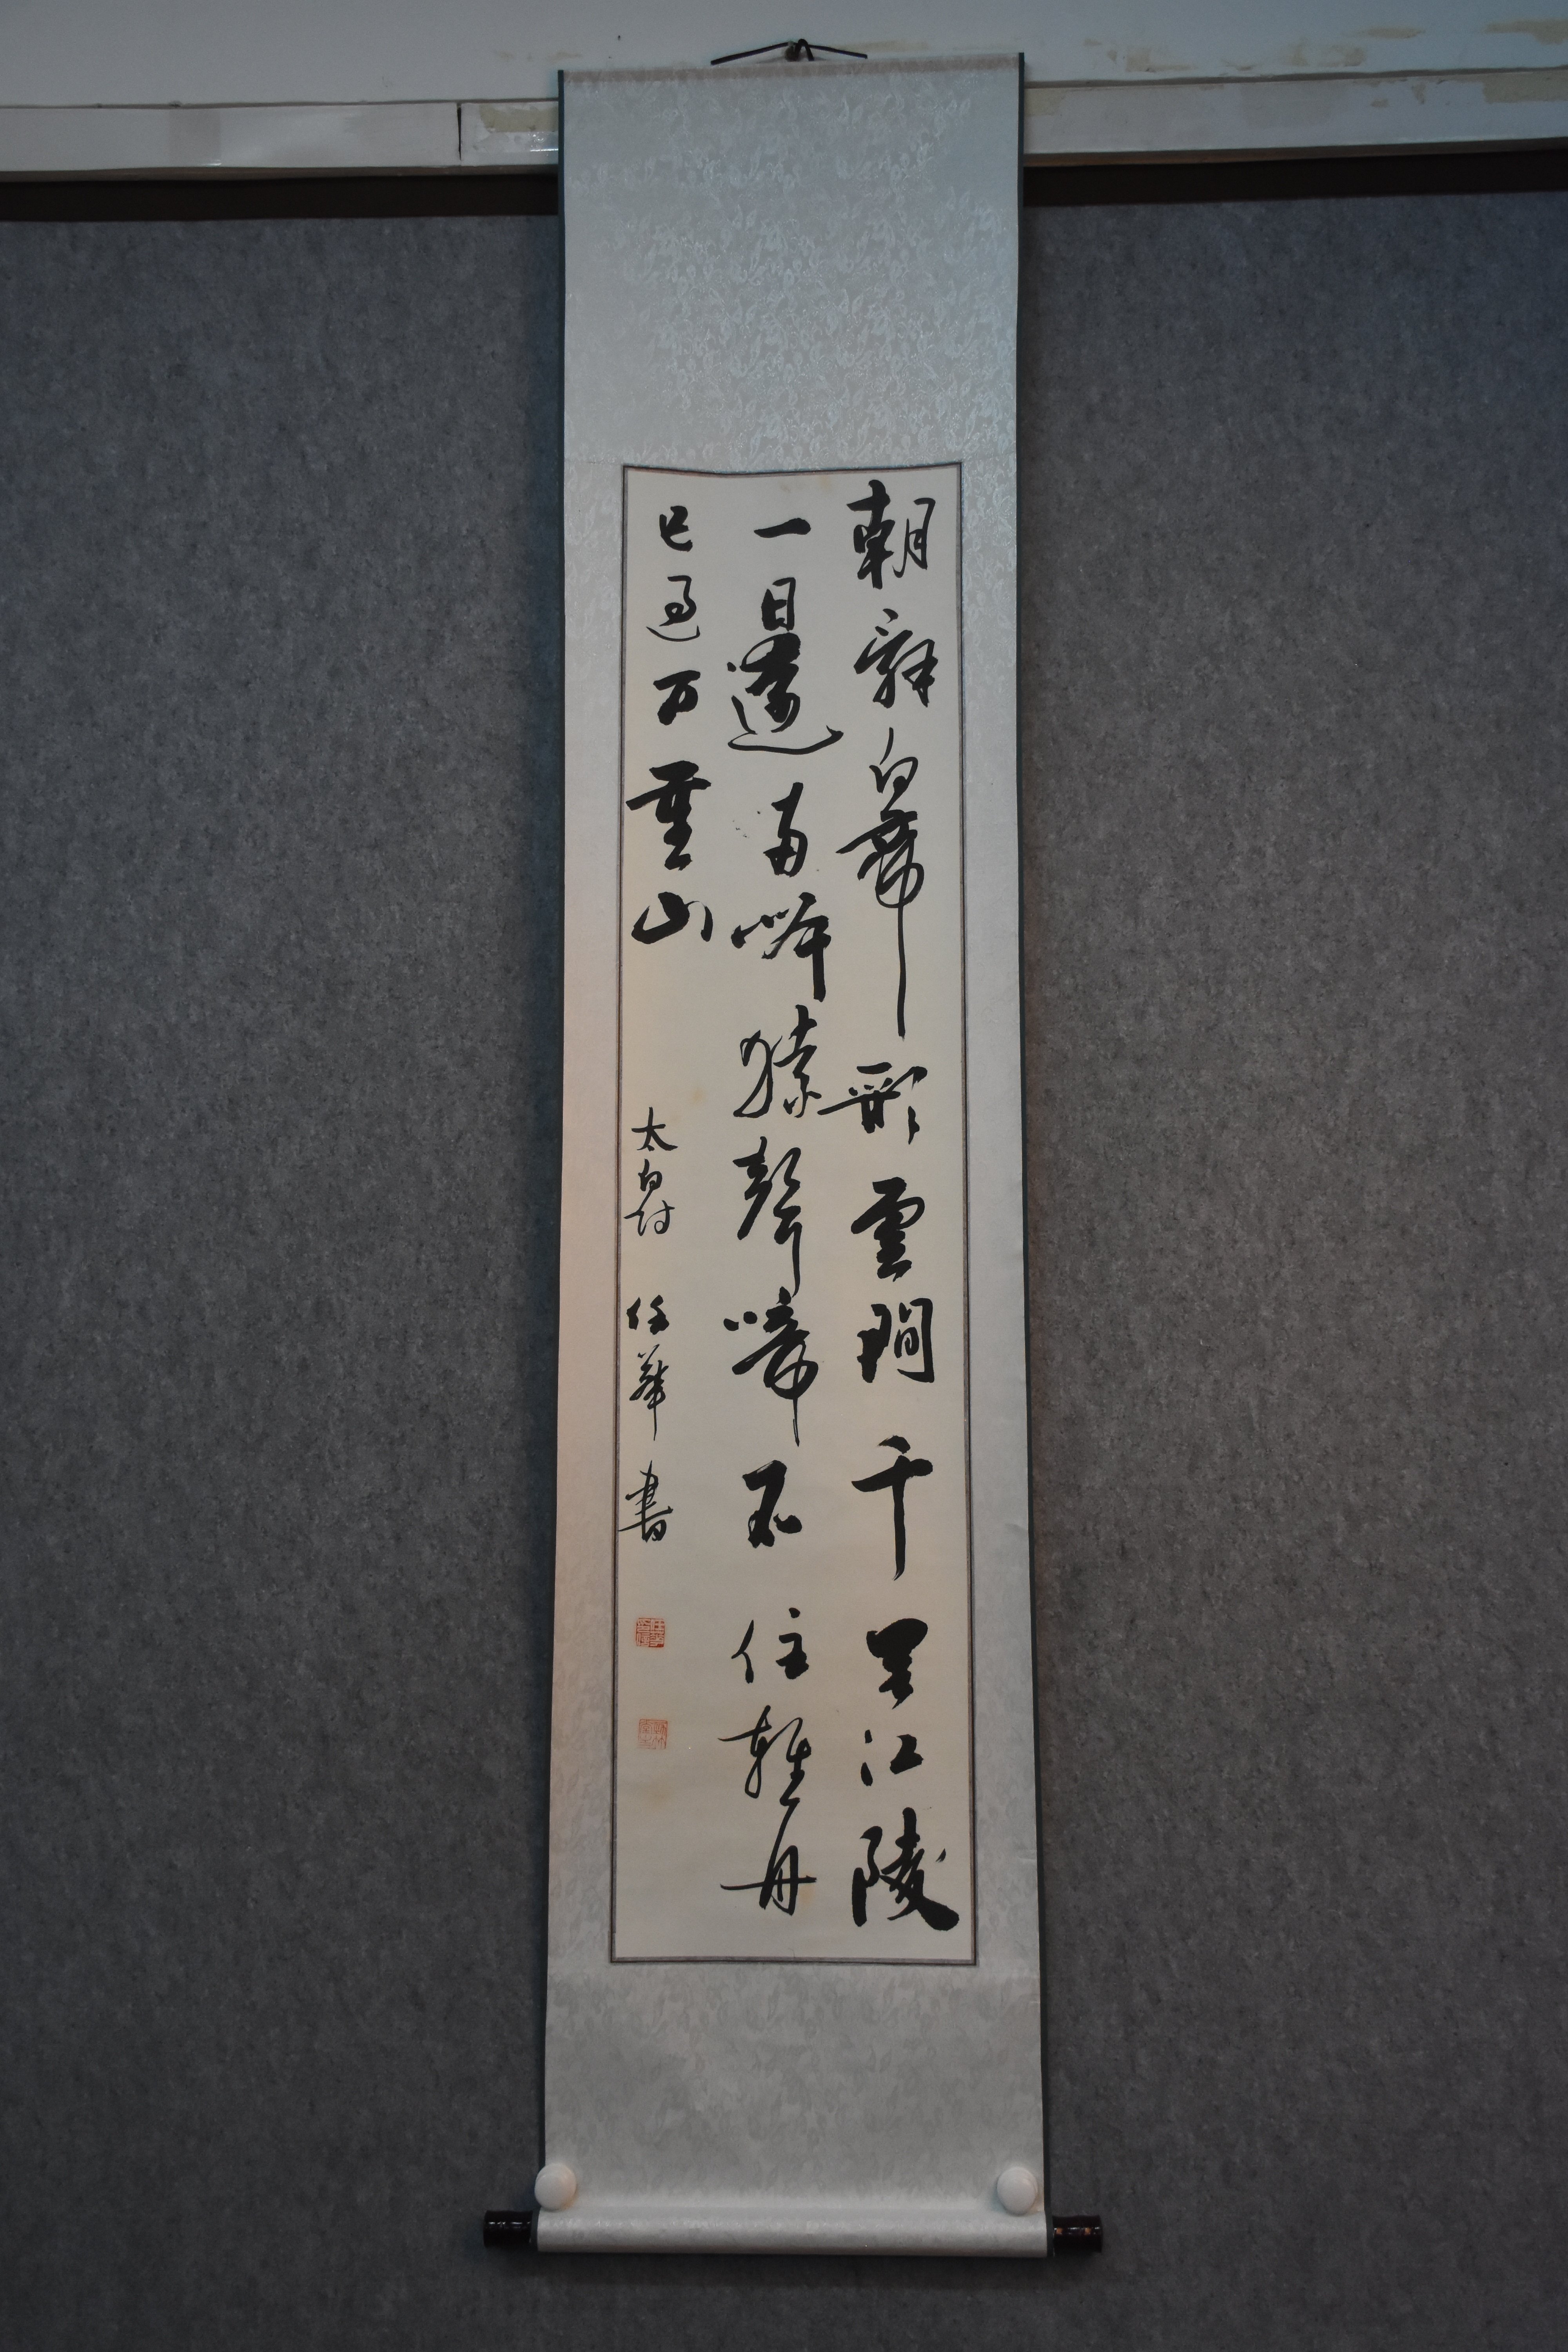 朝辭白帝彩雲間千里江陵
一日還兩岸猿聲啼不住輕舟
已過万重山
太白诗 任華書